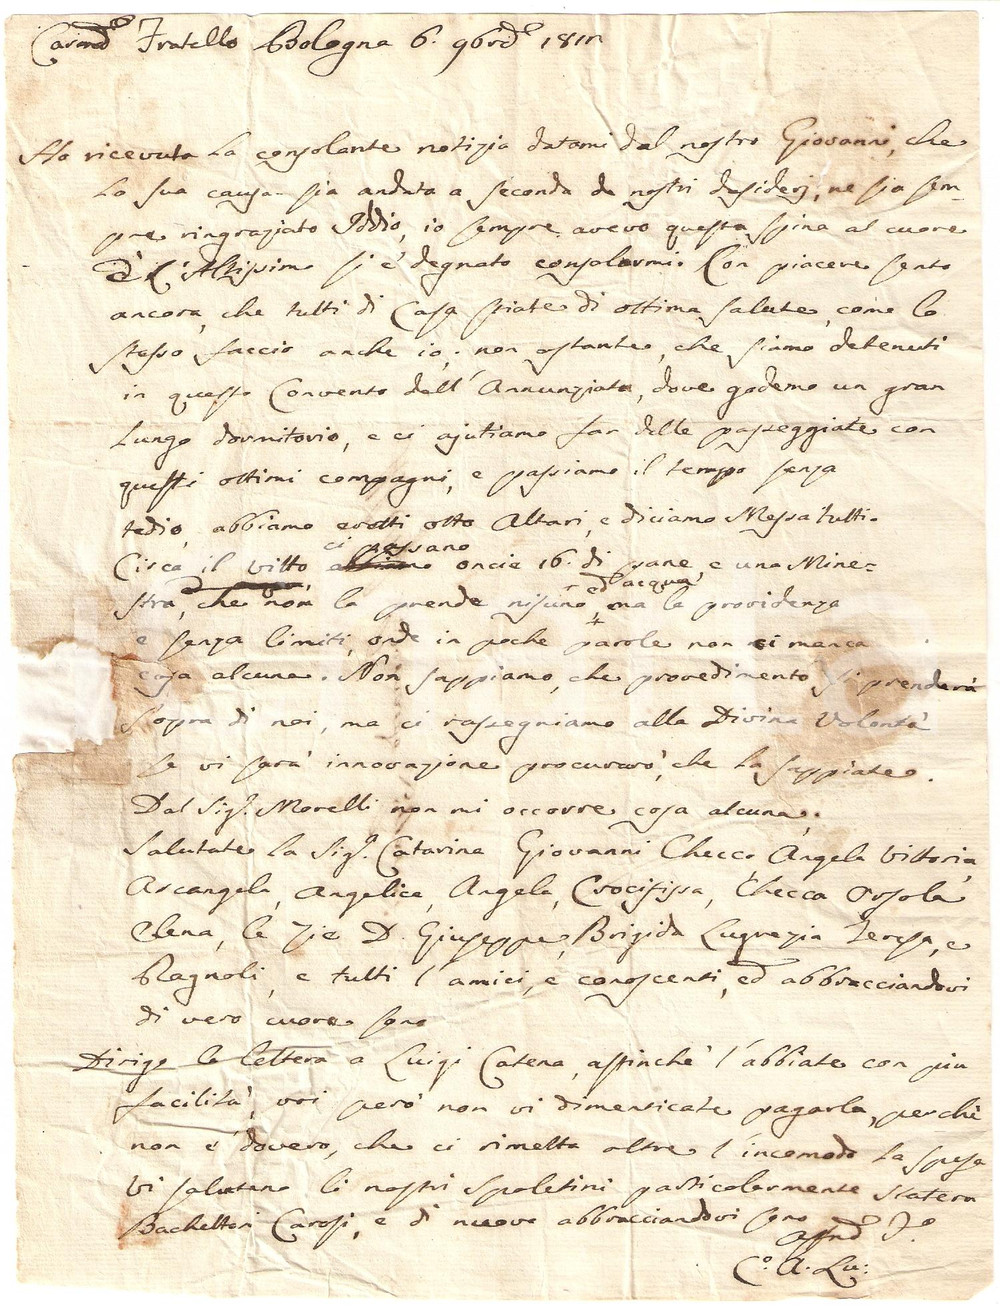 Carmo Fratello Bologna 6. 9bre 181
Ho ricevuta la consolante notizia datami dal nostro Giovanni, che
la sua causa sia andata a seconda de nostri desiderj, ne sia sem-
pre ringraziato Iddio, io sempre avevo questa spina al cuore
e l'Altissimo si è degnato consolarmi. Con piacere sento
ancora, che tutti di Casa stiate di ottima salute, come lo
stesso faccio anche io, non ostante, che siamo detenuti
in questo Convento dell'Annunziata, dove godemo un gran
lungo dormitorio, e ci ajutiamo far delle passeggiate con
questi ottimi compagni, e passiamo il tempo senza
tedio, abbiamo eretti otto Altari, e diciamo Messa tutti.
Circa il vitto ci passano oncie 16. di pane e una Mine=
stra, che non la prende nisuno, ed acqua, ma la providenza
è senza limiti, onde in poche parole non ci manca
cosa alcuna. Non sappiamo, che provedimento si prenderà
sopra di noi, ma ci rassegniamo alla Divina Volontà
se vi sarà innovazione procurarò, che la sappiate.
Dal Sigr. Morelli non mi occorre cosa alcuna.
Salutate la Sigr. Catarina Giovanni Checco Angela Vittoria
Arcangela, Angelica, Angela, Crocifissa, Checca Orsola
Elena, le Zie D. Giuseppe, Brigida Lugrezia Teresa, e
Ragnoli, e tutti l'amici, e conoscenti, ed abbracciandovi
di vero cuore sono
Dirigo la lettera a Luigi Catena, affinchè l'abbiate con più
facilità, voi però non vi dimenticate pagarla, perchè
non è dovero, che ci rimetta oltre l'incomodo la spesa
Vi salutano li nostri Spoletini particolarmente Statera
Bachettoni Carosi, e di nuovo abbracciandovi sono
Affmo Fo
Co. A. Lu: